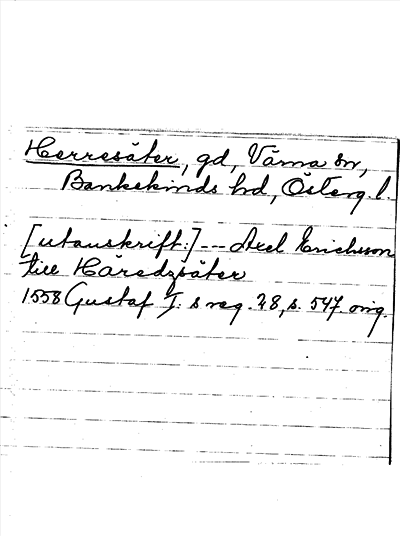 Herresäter, gd, Värna sn,
Bankekinds hd, Österg. l.
[utanskrift:] -- Axel Erichsson
till Häredzsäter
1558 Gustaf I:s reg. 28, s. 547. orig.